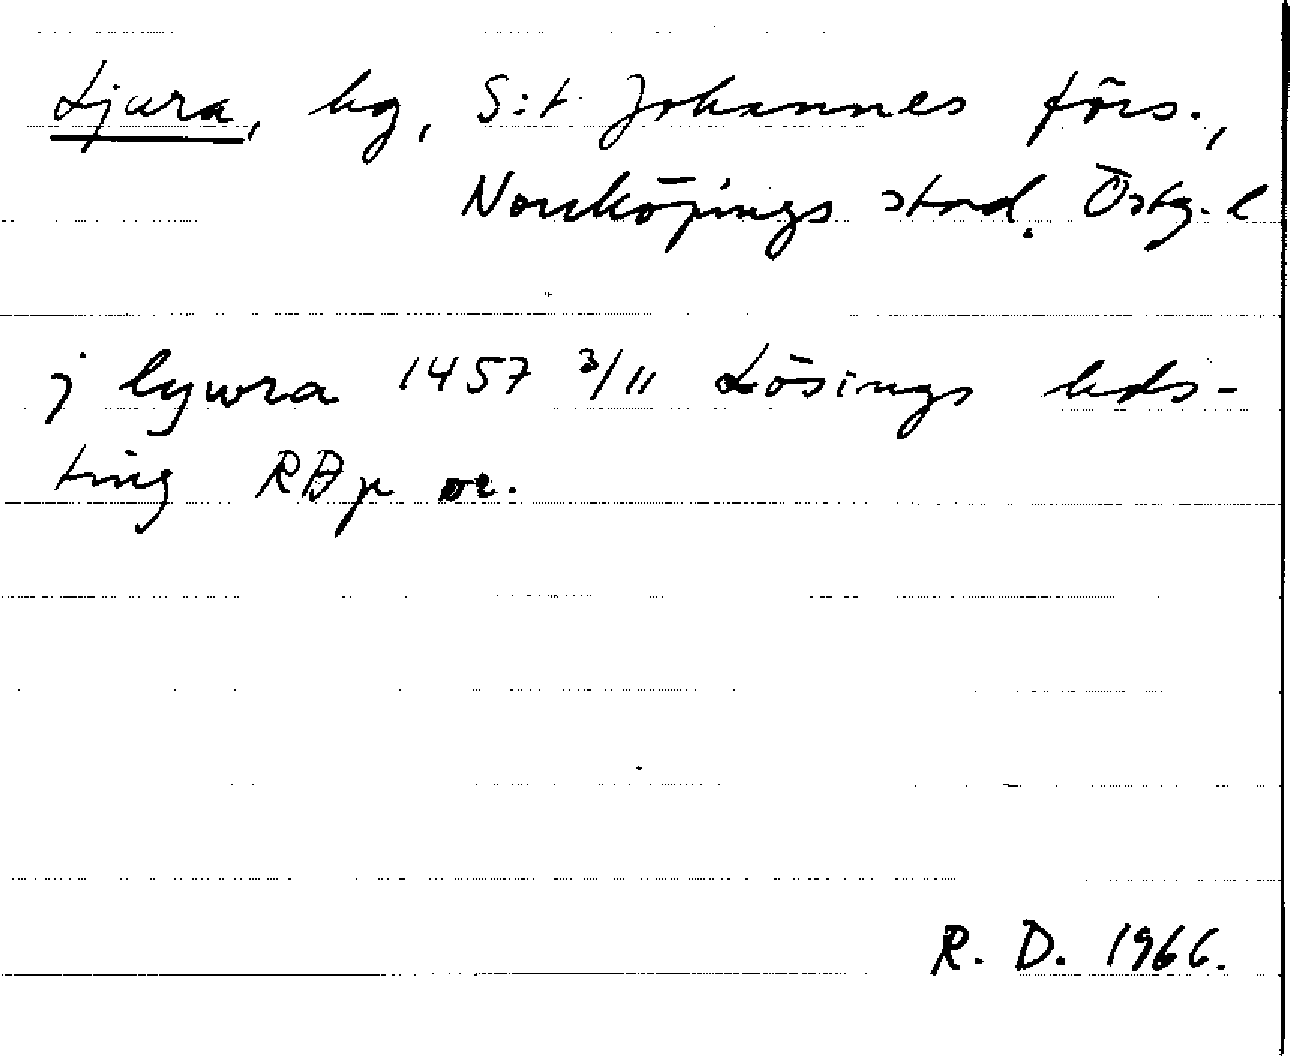 Ljura, hg, S:t Johannes förs.,
Norrköpings stad. Östg. l
j lywra 1457 3/11 Lösings hds-
ting RBp or.
R. D. 1966.